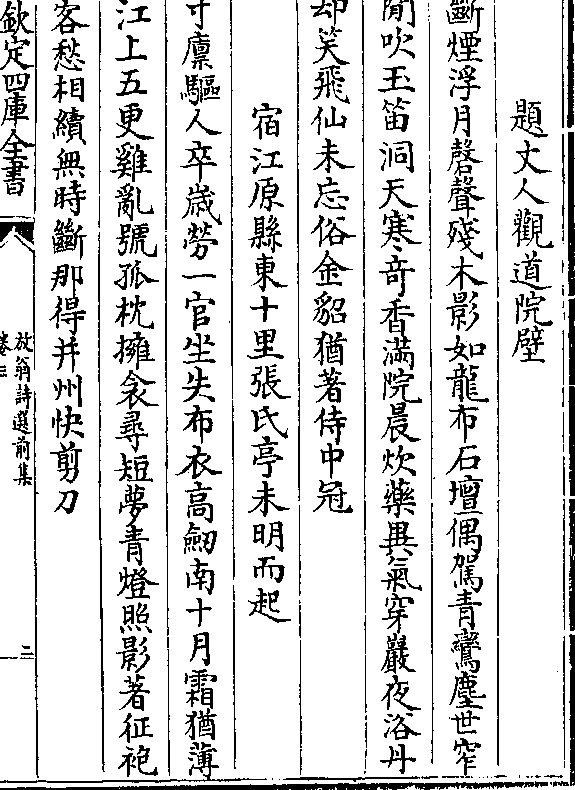 題丈人觀道院壁
斷煙浮月磬聲殘木影如龍布石壇偶駕青鸞塵世窄
閒吹玉笛洞天寒竒香滿院晨炊藥異氣穿巖夜浴丹
却笑飛仙未忘俗金貂猶著侍中冠
宿江原縣東十里張氏亭未明而起
寸廩驅人卒歳勞一官坐失布衣高劒南十月霜猶薄
江上五更雞亂號孤枕擁衾尋短夢青燈照影著征袍
客愁相續無時斷那得并州快剪刀
欽定四庫全書
放翁詩選前集
卷三
二